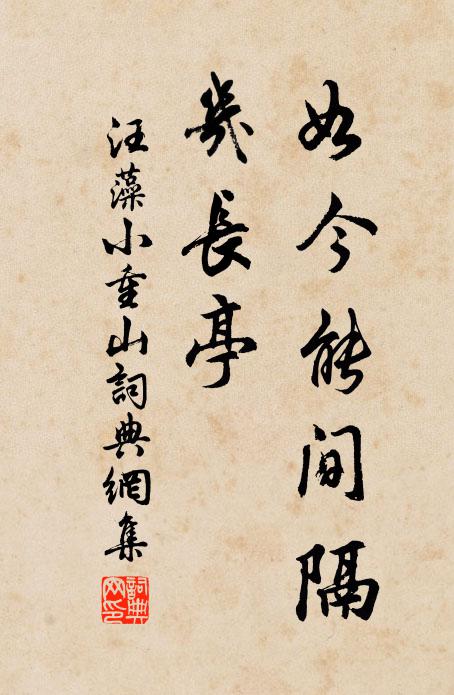 如今能间隔
幾長亭
汪藻小重山詞典網集
詞典网印